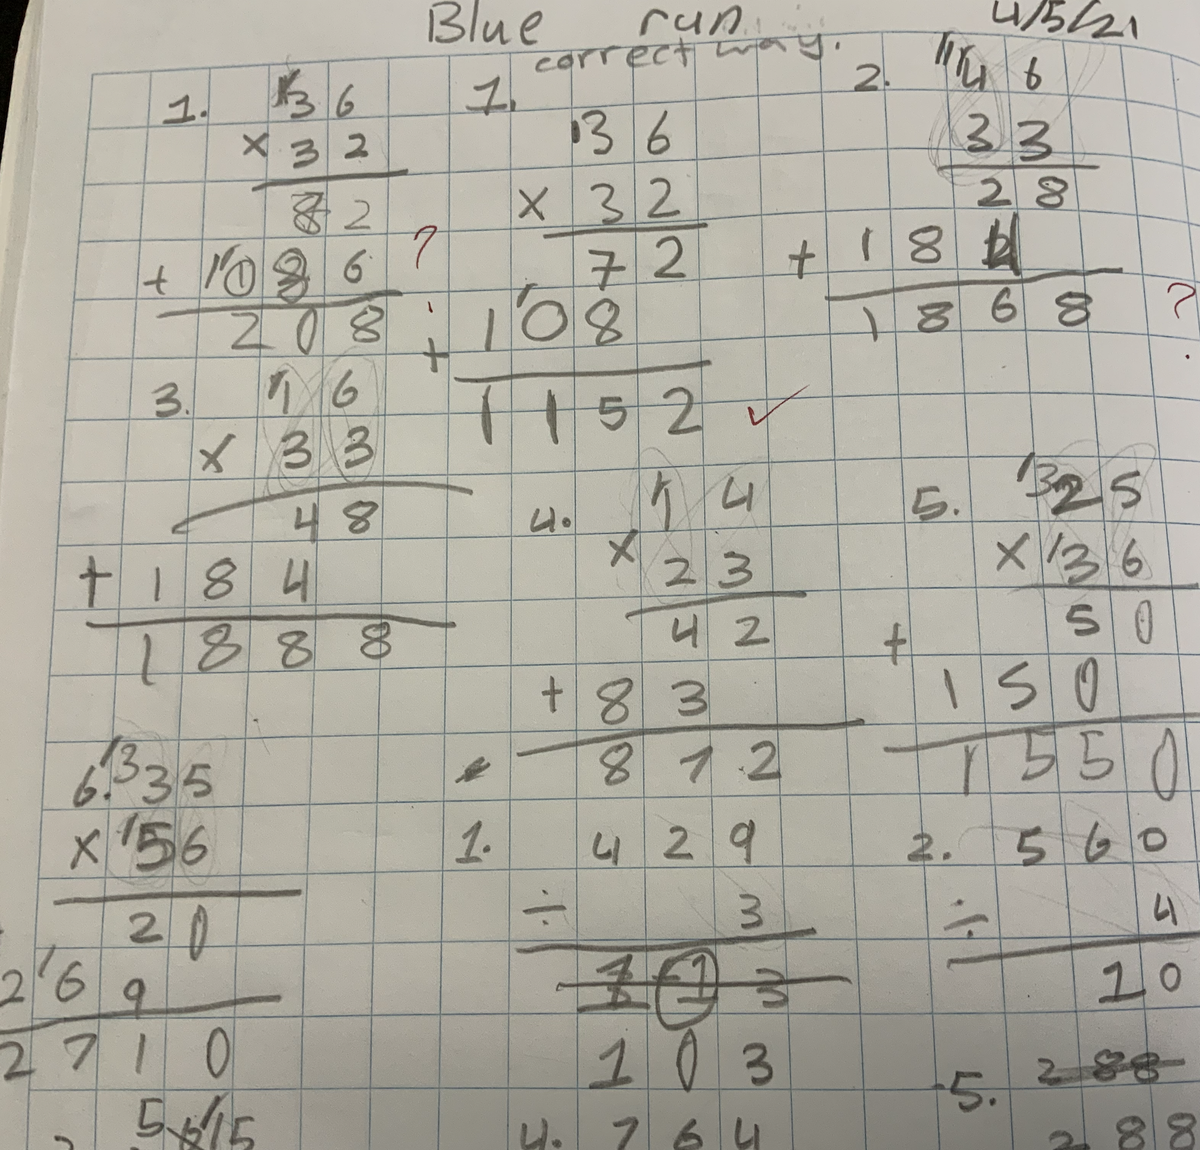 Blue run 4/5/21
correct way.
1. 136
× 32
82
+ 1086 ?
208
1.
136
× 32
72
+ 108
1152 ✓
2. 46
33
28
+ 18
1868 ?
3. 16
× 33
48
+ 184
1888
4. 14
× 23
42
+ 83
872
5. 1325
× 136
50
+
150
1550
6. 1335
× 156
20
2 1 6 9
2710
1. 429
÷ 3
103
2. 560
÷ 4
10
4. 764
5. 288
288